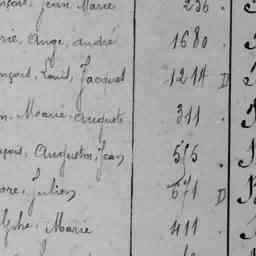 Jean Marie 256
rie, Ange, André 1680
nçois, Louis, Jacques 1214 D
n, Marie, Auguste 311
nçois, Augustin, Jean 515
ore, Julien 671 D
olphe, Marie 411